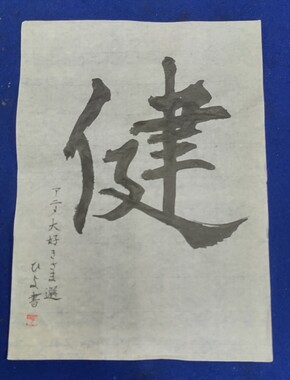 健
アニメ大好きさま選
ひよ書